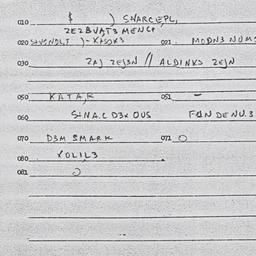 010 $ ) SNARCEPL,
ZEZBVAT3 MENCP
020 )-KASOKS 021. MODN3 NUMS
030 ZAJ ZEJ3N // ALDINKS ZEJN
050 KATAK 051 -
060 SINA.C D3X OUS FAN DENU.3
070 D3M SMARK 072 O
080 XOLIL3
081 O